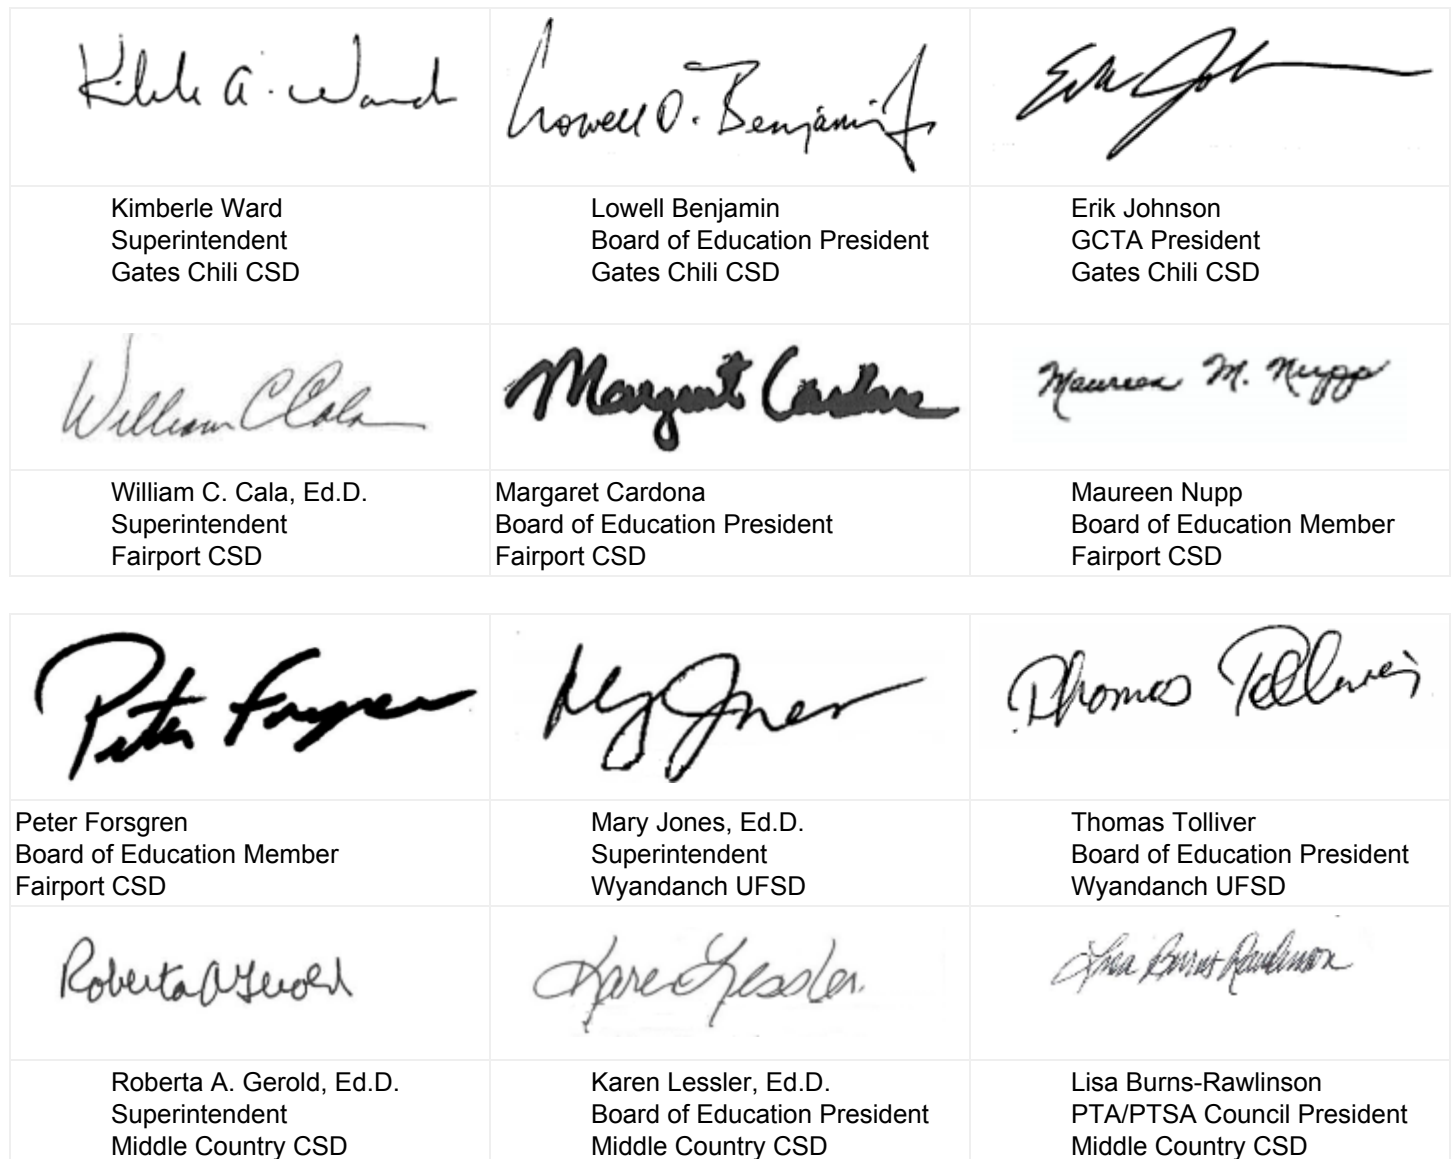 Kimberle A. Ward
Lowell D. Benjamin Jr
Erik Joh
Kimberle Ward
Superintendent
Gates Chili CSD
Lowell Benjamin
Board of Education President
Gates Chili CSD
Erik Johnson
GCTA President
Gates Chili CSD
William C Cala
Margaret Cardona
Maureen M. Nupp
William C. Cala, Ed.D.
Superintendent
Fairport CSD
Margaret Cardona
Board of Education President
Fairport CSD
Maureen Nupp
Board of Education Member
Fairport CSD
Peter Forsgren
Mary Jones
Thomas Tolliver
Peter Forsgren
Board of Education Member
Fairport CSD
Mary Jones, Ed.D.
Superintendent
Wyandanch UFSD
Thomas Tolliver
Board of Education President
Wyandanch UFSD
Roberta A Gerold
Karen Lessler
Lisa Burns Rawlinson
Roberta A. Gerold, Ed.D.
Superintendent
Middle Country CSD
Karen Lessler, Ed.D.
Board of Education President
Middle Country CSD
Lisa Burns-Rawlinson
PTA/PTSA Council President
Middle Country CSD